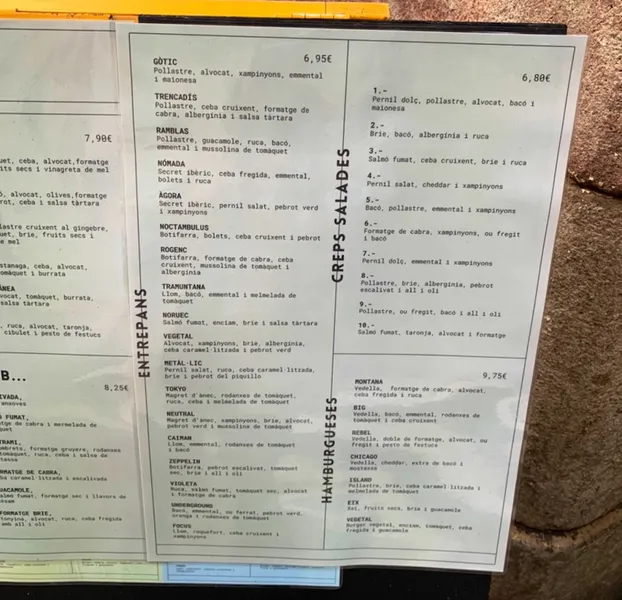 7,90€
uet, ceba, alvocat,formatge
its secs i vinagreta de mel
, alvocat, olives,formatge
rot, ceba i salsa tàrtara
lastre cruixent al gingebre,
uet, brie, fruits secs i
e mel
stanaga, ceba, alvocat,
omàquet i burrata
ÀNEA
vocat, tomàquet, burrata,
salsa tàrtara
, ruca, alvocat, taronja,
cibulet i pesto de festucs
B...
8,25€
IVADA,
anxoves
FUMAT,
tge de cabra i mermelada de
quet
TRAMI,
formatge gruyere, rodanxes
tomàquet, ruca, ceba i salsa de
RMATGE DE CABRA,
ba caramel·litzada i escalivada
UACAMOLE,
almó fumat, formatge sec i llavors de
FORMATGE BRIE,
tonyina, alvocat, ruca, ceba fregida
amb all i oli
ENTREPANS
6,95€
GÒTIC
Pollastre, alvocat, xampinyons, emmental
i maionesa
TRENCADÍS
Pollastre, ceba cruixent, formatge de
cabra, albergínia i salsa tàrtara
RAMBLAS
Pollastre, guacamole, ruca, bacó,
emmental i mussolina de tomàquet
NÒMADA
Secret ibèric, ceba fregida, emmental,
bolets i ruca
ÀGORA
Secret ibèric, pernil salat, pebrot verd
i xampinyons
NOCTAMBULUS
Botifarra, bolets, ceba cruixent i pebrot
ROGENC
Botifarra, formatge de cabra, ceba
cruixent, mussolina de tomàquet i
albergínia
TRAMUNTANA
Llom, bacó, emmental i melmelada de
tomàquet
NORUEC
Salmó fumat, enciam, brie i salsa tàrtara
VEGETAL
Alvocat, xampinyons, brie, albergínia,
ceba caramel·litzada i pebrot verd
METÀL·LIC
Pernil salat, ruca, ceba caramel·litzada,
brie i pebrot del piquillo
TOKYO
Magret d'ànec, rodanxes de tomàquet,
ruca, ceba i melmelada de tomàquet
NEUTRAL
Magret d'ànec, xampinyons, brie, alvocat,
pebrot verd i mussolina de tomàquet
CAIMAN
Llom, emmental, rodanxes de tomàquet
i bacó
ZEPPELIN
Botifarra, pebrot escalivat, tomàquet
sec, brie i all i oli
VIOLETA
Ruca, salmó fumat, tomàquet sec, alvocat
i formatge de cabra
UNDERGROUND
Bacó, emmental, ou ferrat, pebrot verd,
orenga i rodanxes de tomàquet
FOCUS
Llom, roquefort, ceba cruixent i
xampinyons
CREPS SALADES
6,80€
1.-
Pernil dolç, pollastre, alvocat, bacó i
maionesa
2.-
Brie, bacó, albergínia i ruca
3.-
Salmó fumat, ceba cruixent, brie i ruca
4.-
Pernil salat, cheddar i xampinyons
5.-
Bacó, pollastre, emmental i xampinyons
6.-
Formatge de cabra, xampinyons, ou fregit
i bacó
7.-
Pernil dolç, emmental i xampinyons
8.-
Pollastre, brie, albergínia, pebrot
escalivat i all i oli
9.-
Pollastre, ou fregit, bacó i all i oli
10.-
Salmó fumat, taronja, alvocat i formatge
HAMBURGUESES
9,75€
MONTANA
Vedella, formatge de cabra, alvocat,
ceba fregida i ruca
BIG
Vedella, bacó, emmental, rodanxes de
tomàquet i ceba cruixent
REBEL
Vedella, doble de formatge, alvocat, ou
fregit i pesto de festucs
CHICAGO
Vedella, cheddar, extra de bacó i
mostassa
ISLAND
Pollastre, brie, ceba caramel·litzada i
melmelada de tomàquet
EIX
fruits secs, brie i guacamole
VEGETAL
Burger vegetal, enciam, tomàquet, ceba
fregida i guacamole